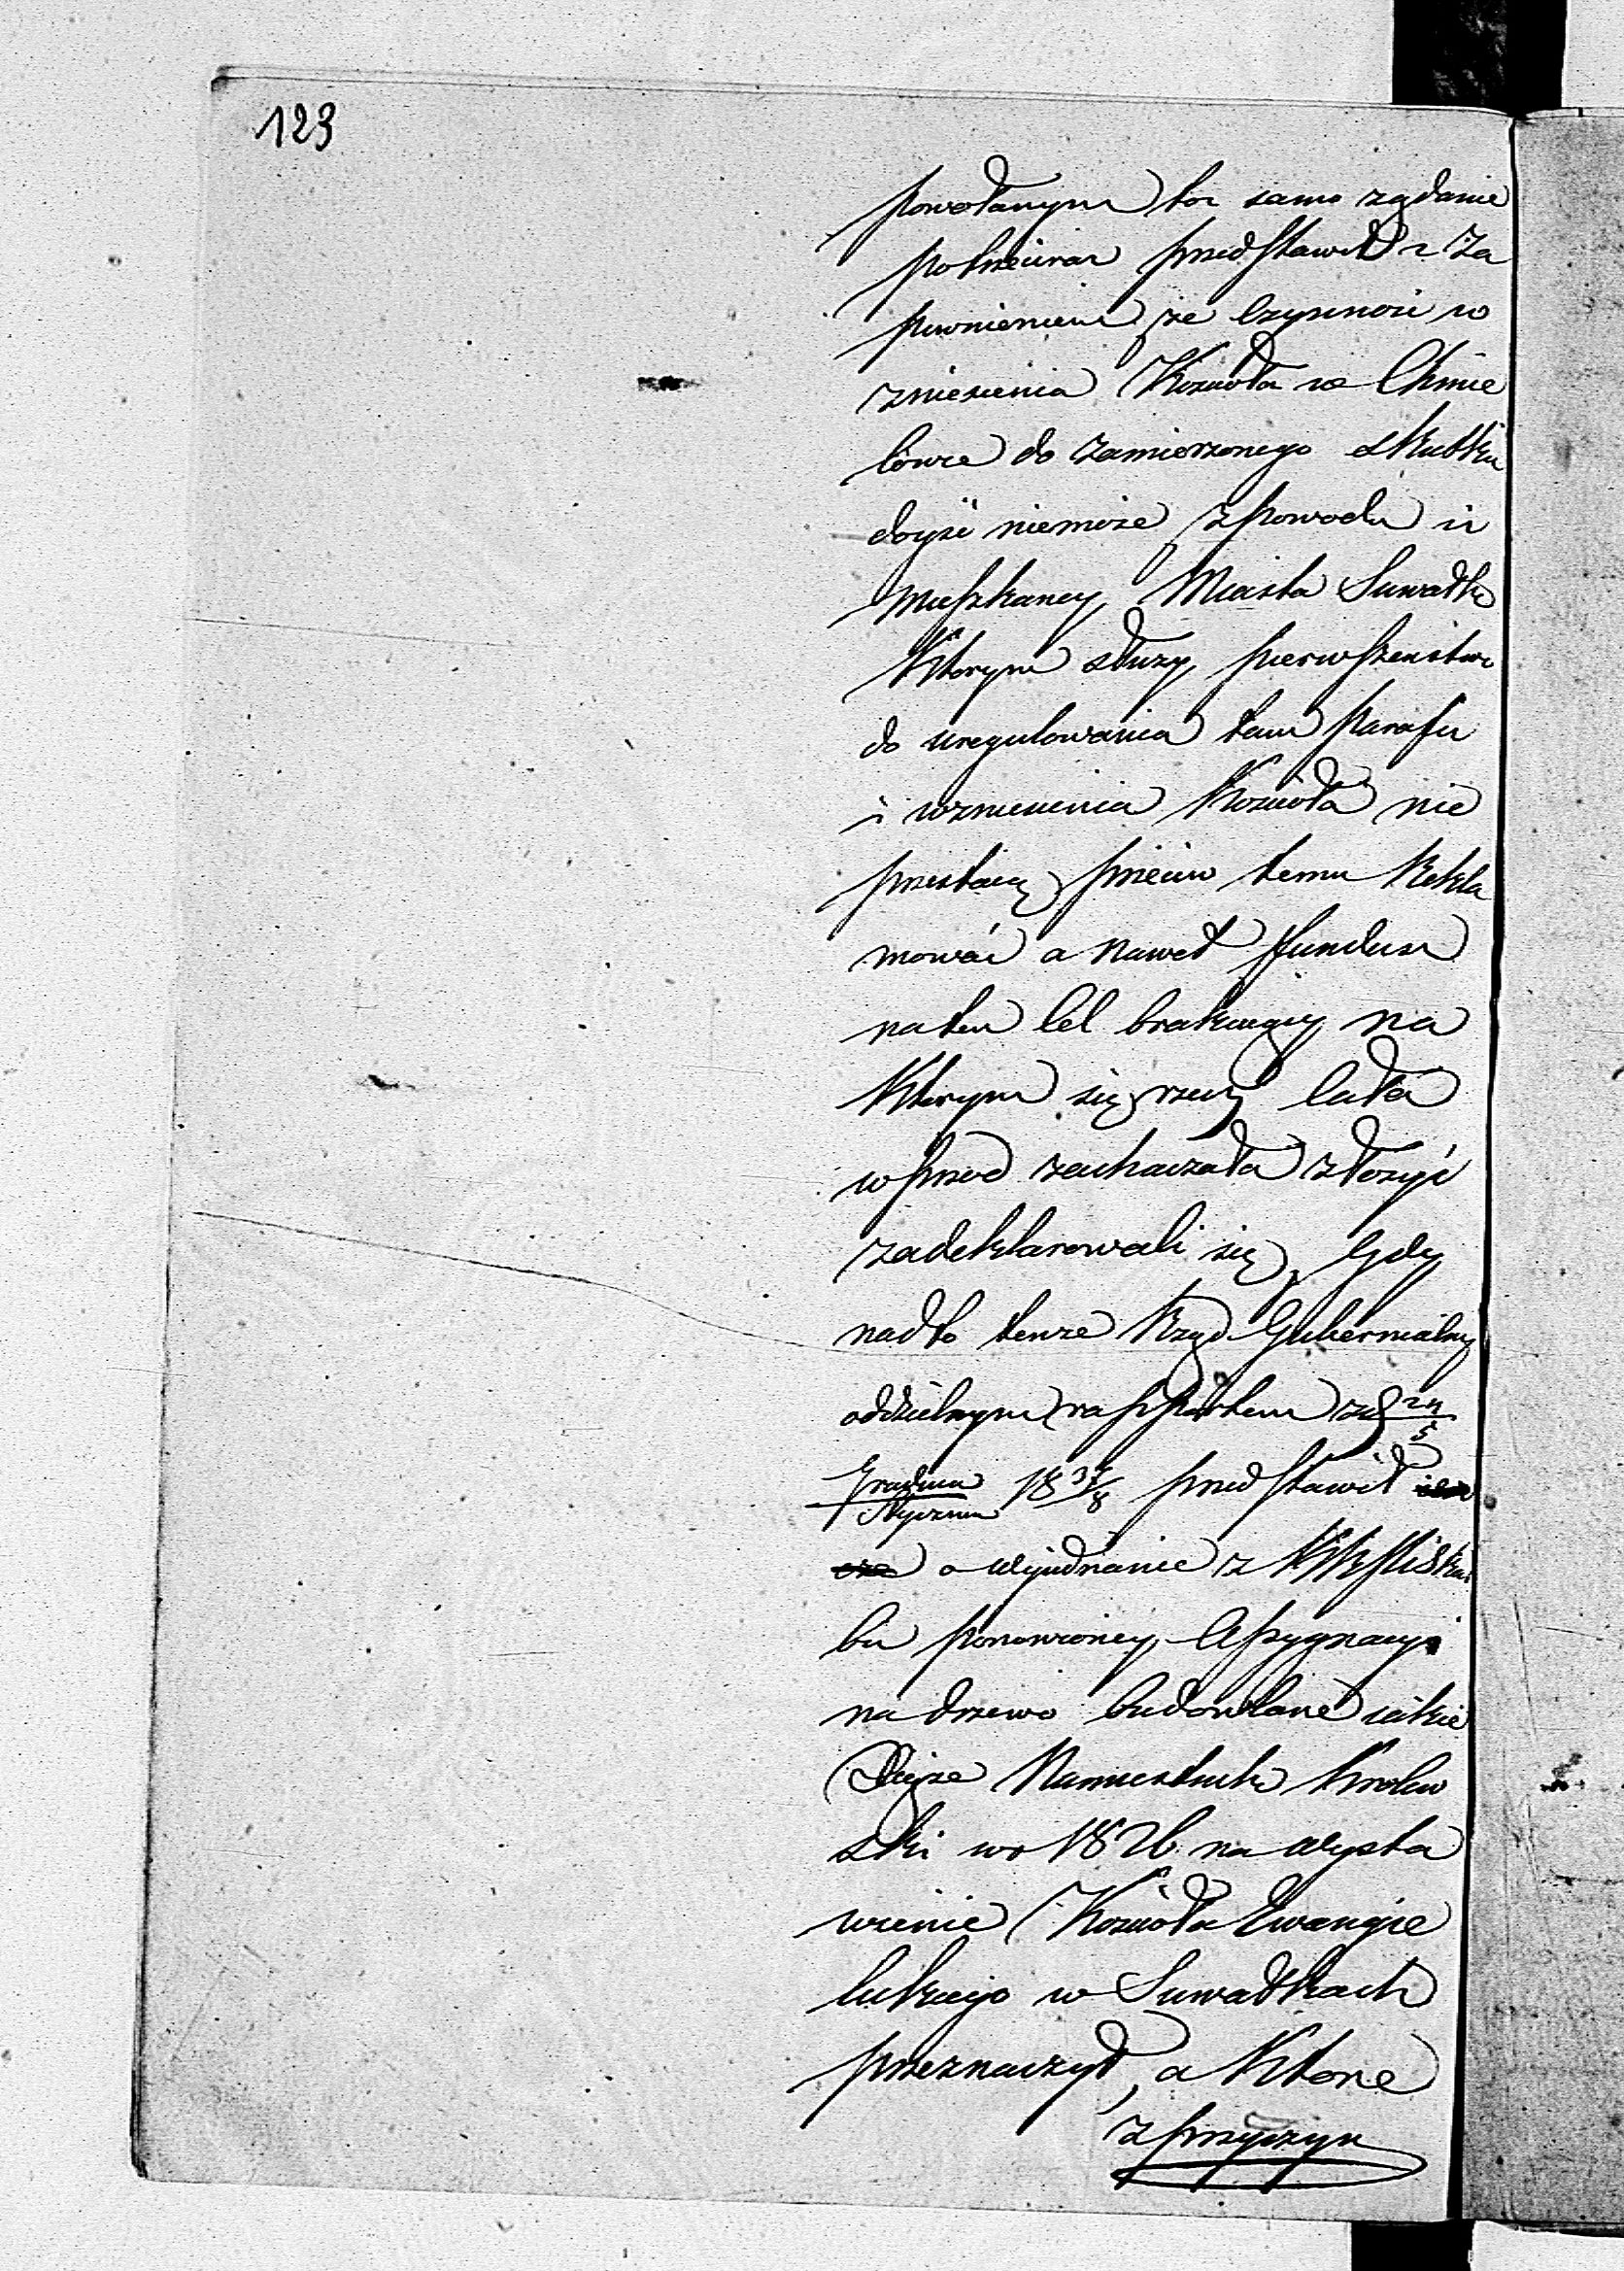 123
powołanym toż samo żądanie
potrzeciraz przedstawił z za
pewnieniem że czynność w
zniesienia Kościoła we Chmie
lówce do zamierzonego skutku
dojść niemoże z powodu iż
Mieszkańcy Miasta Suwałk
którym służy pierwszeństwo
do uregulowania tam Parafii
i wzniesienia Kościoła nie
przestają przeciw temu Rekla
mować a nawet fundusz
naten Cel brakujący na
którym się rzecz cała
wprzód zachaczała złożyć
zadeklarowali się, Gdy
nadto tenże Rząd Gubernialny
oddzielnym rapportem z d 24/5
Grudnia/Stycznia 183 7/8 przedstawił
o wyjednanie z KR
bu ponowioney Assygnacyi
na drzewo budowlane jakie
Xiąże Namiestnik Królew
ski w 1826 na wysta
wienie Kościoła Ewangie
lickiego w Suwałkach
przeznaczył, a które
z przyczyn